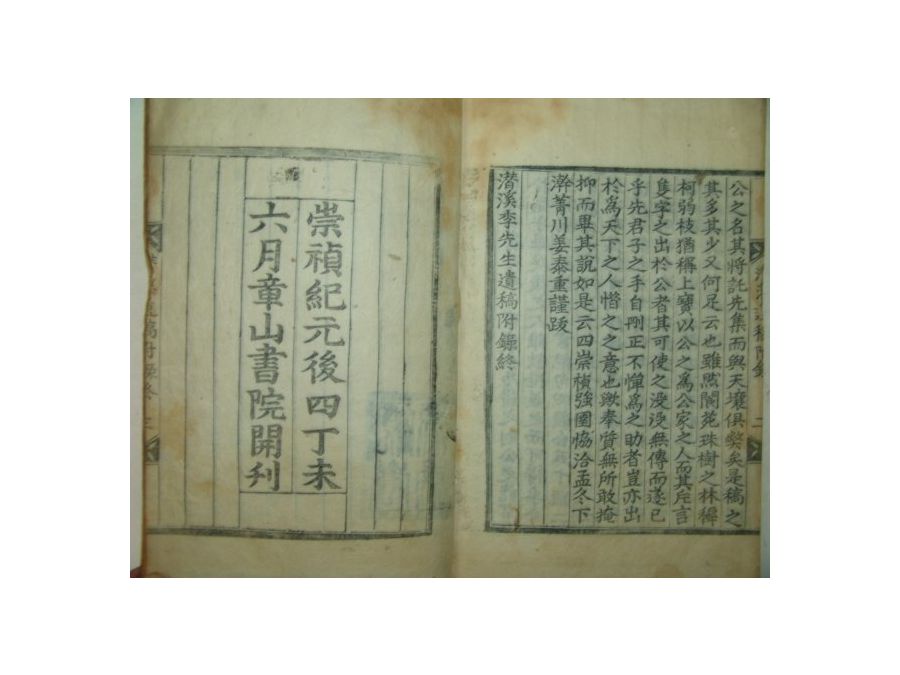 公之名其將託先集而與天壤俱獘矣是稿之
其多其少又何足云也雖然閬苑珠樹之林穉
柯弱枝猶稱上寶以公之爲公家之人而其片言
隻字之出於公者其可使之沒沒無傳而遂已
乎先君子之手自刪正不憚爲之助者豈亦出
於爲天下之人惜之之意也歟奉賫無所敢掩
抑而畢其說如是云四崇禎強圉協洽孟冬下
澣菁川姜泰重謹跋
潛溪李先生遺稿附錄終
崇禎紀元後四丁未
六月章山書院開刊